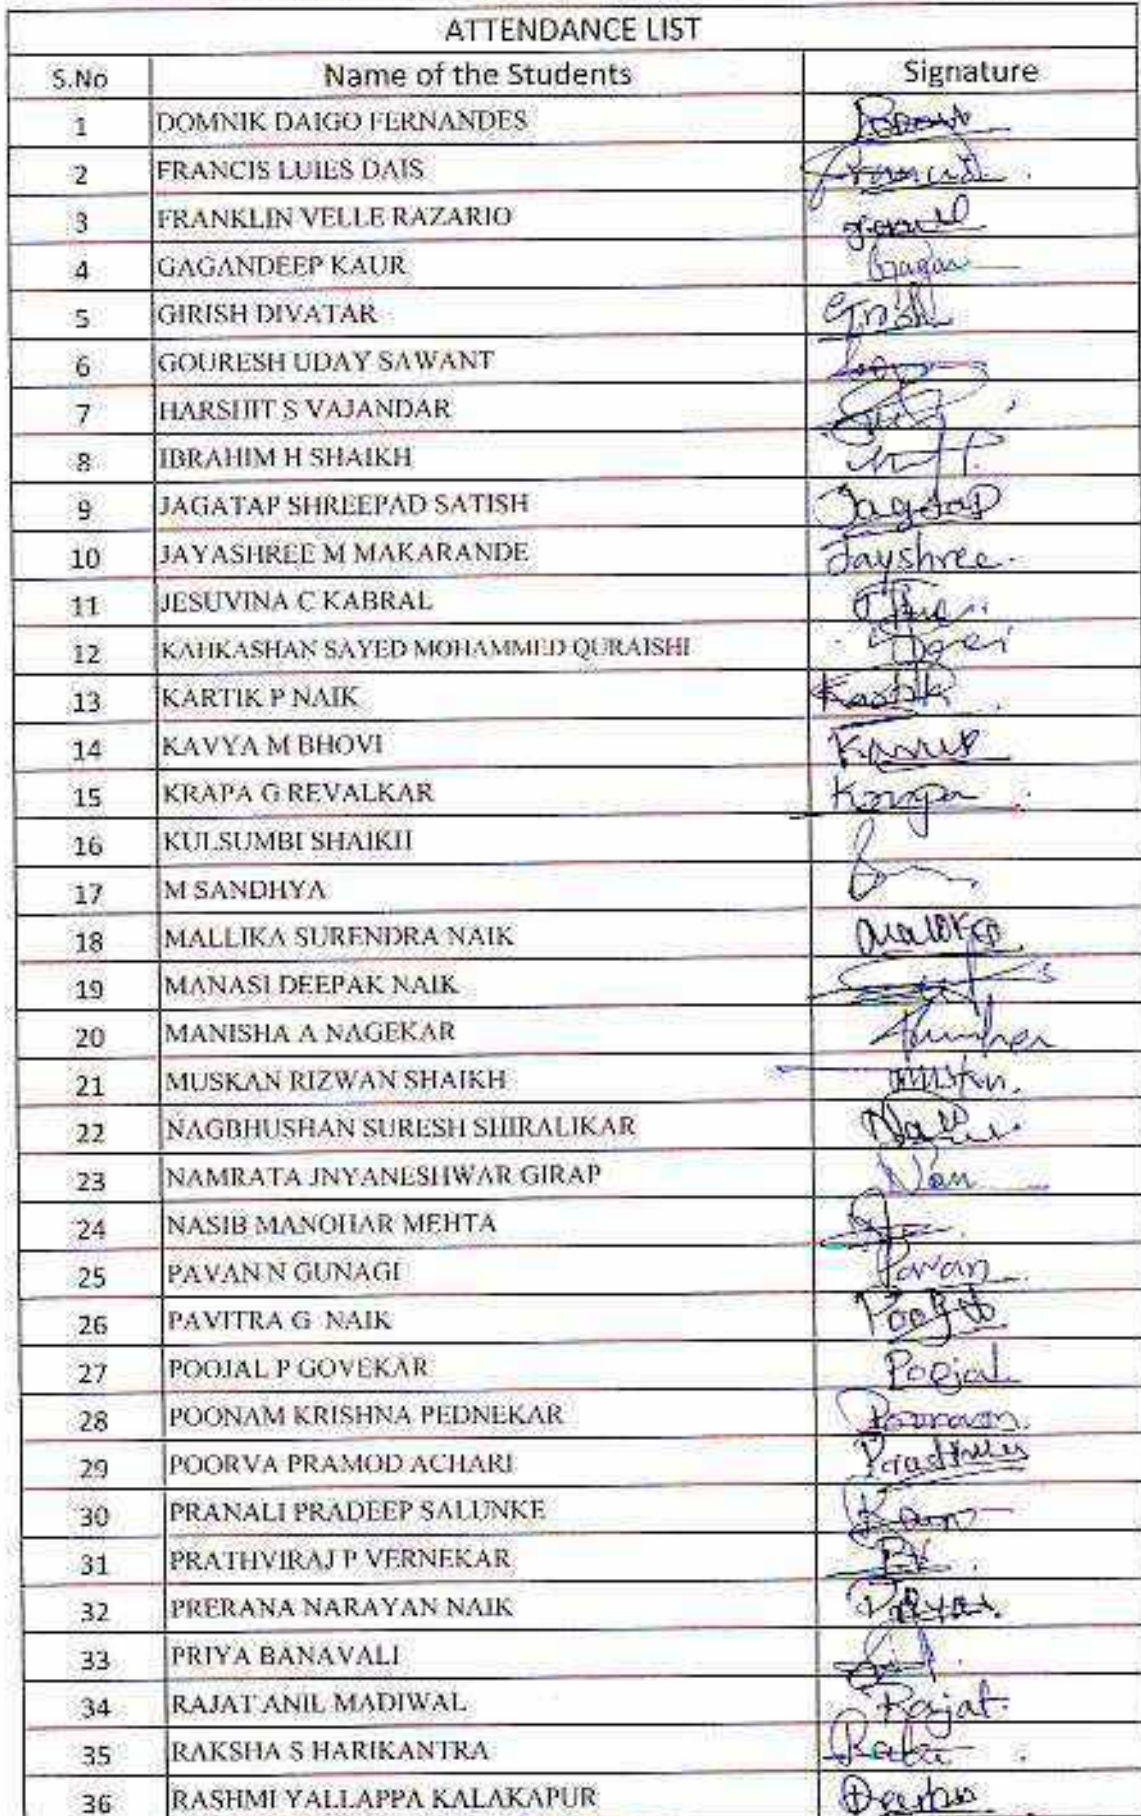 ATTENDANCE LIST
S.No Name of the Students Signature
1 DOMNIK DAIGO FERNANDES
2 FRANCIS LUIES DAIS Francis
3 FRANKLIN VELLE RAZARIO
4 GAGANDEEP KAUR Gagan
5 GIRISH DIVATAR Girish
6 GOURESH UDAY SAWANT
7 HARSHIT S VAJANDAR
8 IBRAHIM H SHAIKH
9 JAGATAP SHREEPAD SATISH Jagatap
10 JAYASHREE M MAKARANDE Jayshree.
11 JESUVINA C KABRAL
12 KAHKASHAN SAYED MOHAMMED QURAISHI
13 KARTIK P NAIK Kartik
14 KAVYA M BHOVI
15 KRAPA G REVALKAR
16 KULSUMBI SHAIKH
17 M SANDHYA
18 MALLIKA SURENDRA NAIK
19 MANASI DEEPAK NAIK
20 MANISHA A NAGEKAR
21 MUSKAN RIZWAN SHAIKH
22 NAGBHUSHAN SURESH SHIRALIKAR
23 NAMRATA JNYANESHWAR GIRAP
24 NASIB MANOHAR MEHTA
25 PAVAN N GUNAGI Pavan
26 PAVITRA G NAIK
27 POOJAL P GOVEKAR Poojal
28 POONAM KRISHNA PEDNEKAR Poonam.
29 POORVA PRAMOD ACHARI
30 PRANALI PRADEEP SALUNKE
31 PRATHVIRAJ P VERNEKAR
32 PRERANA NARAYAN NAIK
33 PRIYA BANAVALI
34 RAJAT ANIL MADIWAL Rajat.
35 RAKSHA S HARIKANTRA
36 RASHMI YALLAPPA KALAKAPUR